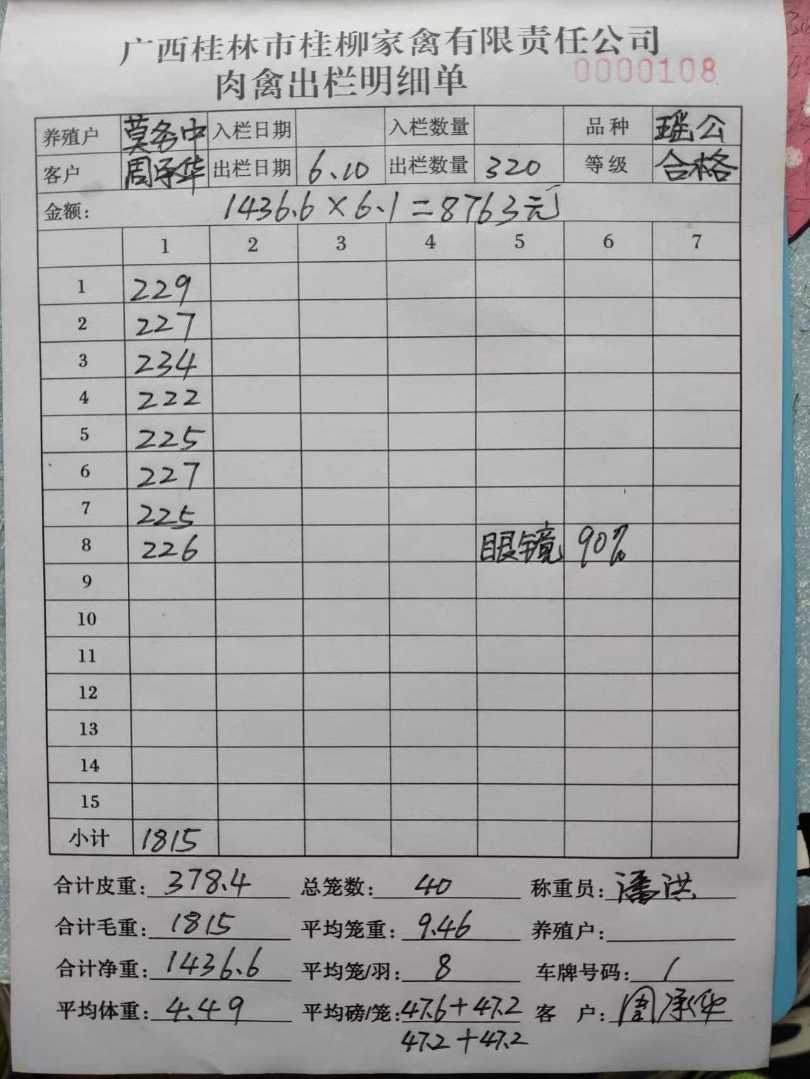 广西桂林市桂柳家禽有限责任公司
肉禽出栏明细单 0000108
养殖户 莫务中 入栏日期 入栏数量 品种 瑶公
客户 周承华 出栏日期 6.10 出栏数量 320 等级 合格
金额: 1436.6×6.1=8763元
1 2 3 4 5 6 7
1 229
2 227
3 234
4 222
5 225
6 227
7 225
8 226 眼镜 90%
9
10
11
12
13
14
15
小计 1815
合计皮重: 378.4 总笼数: 40 称重员: 潘洪
合计毛重: 1815 平均笼重: 9.46 养殖户:
合计净重: 1436.6 平均笼/羽: 8 车牌号码: /
平均体重: 4.49 平均磅/笼: 47.6+47.2 客 户: 周承华
47.2+47.2